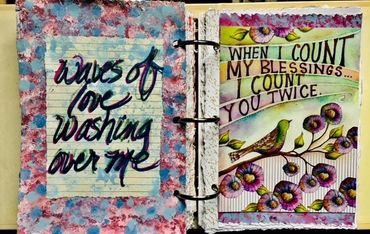 waves of
love
washing
over me
WHEN I COUNT
MY BLESSINGS...
I COUNT
YOU TWICE.